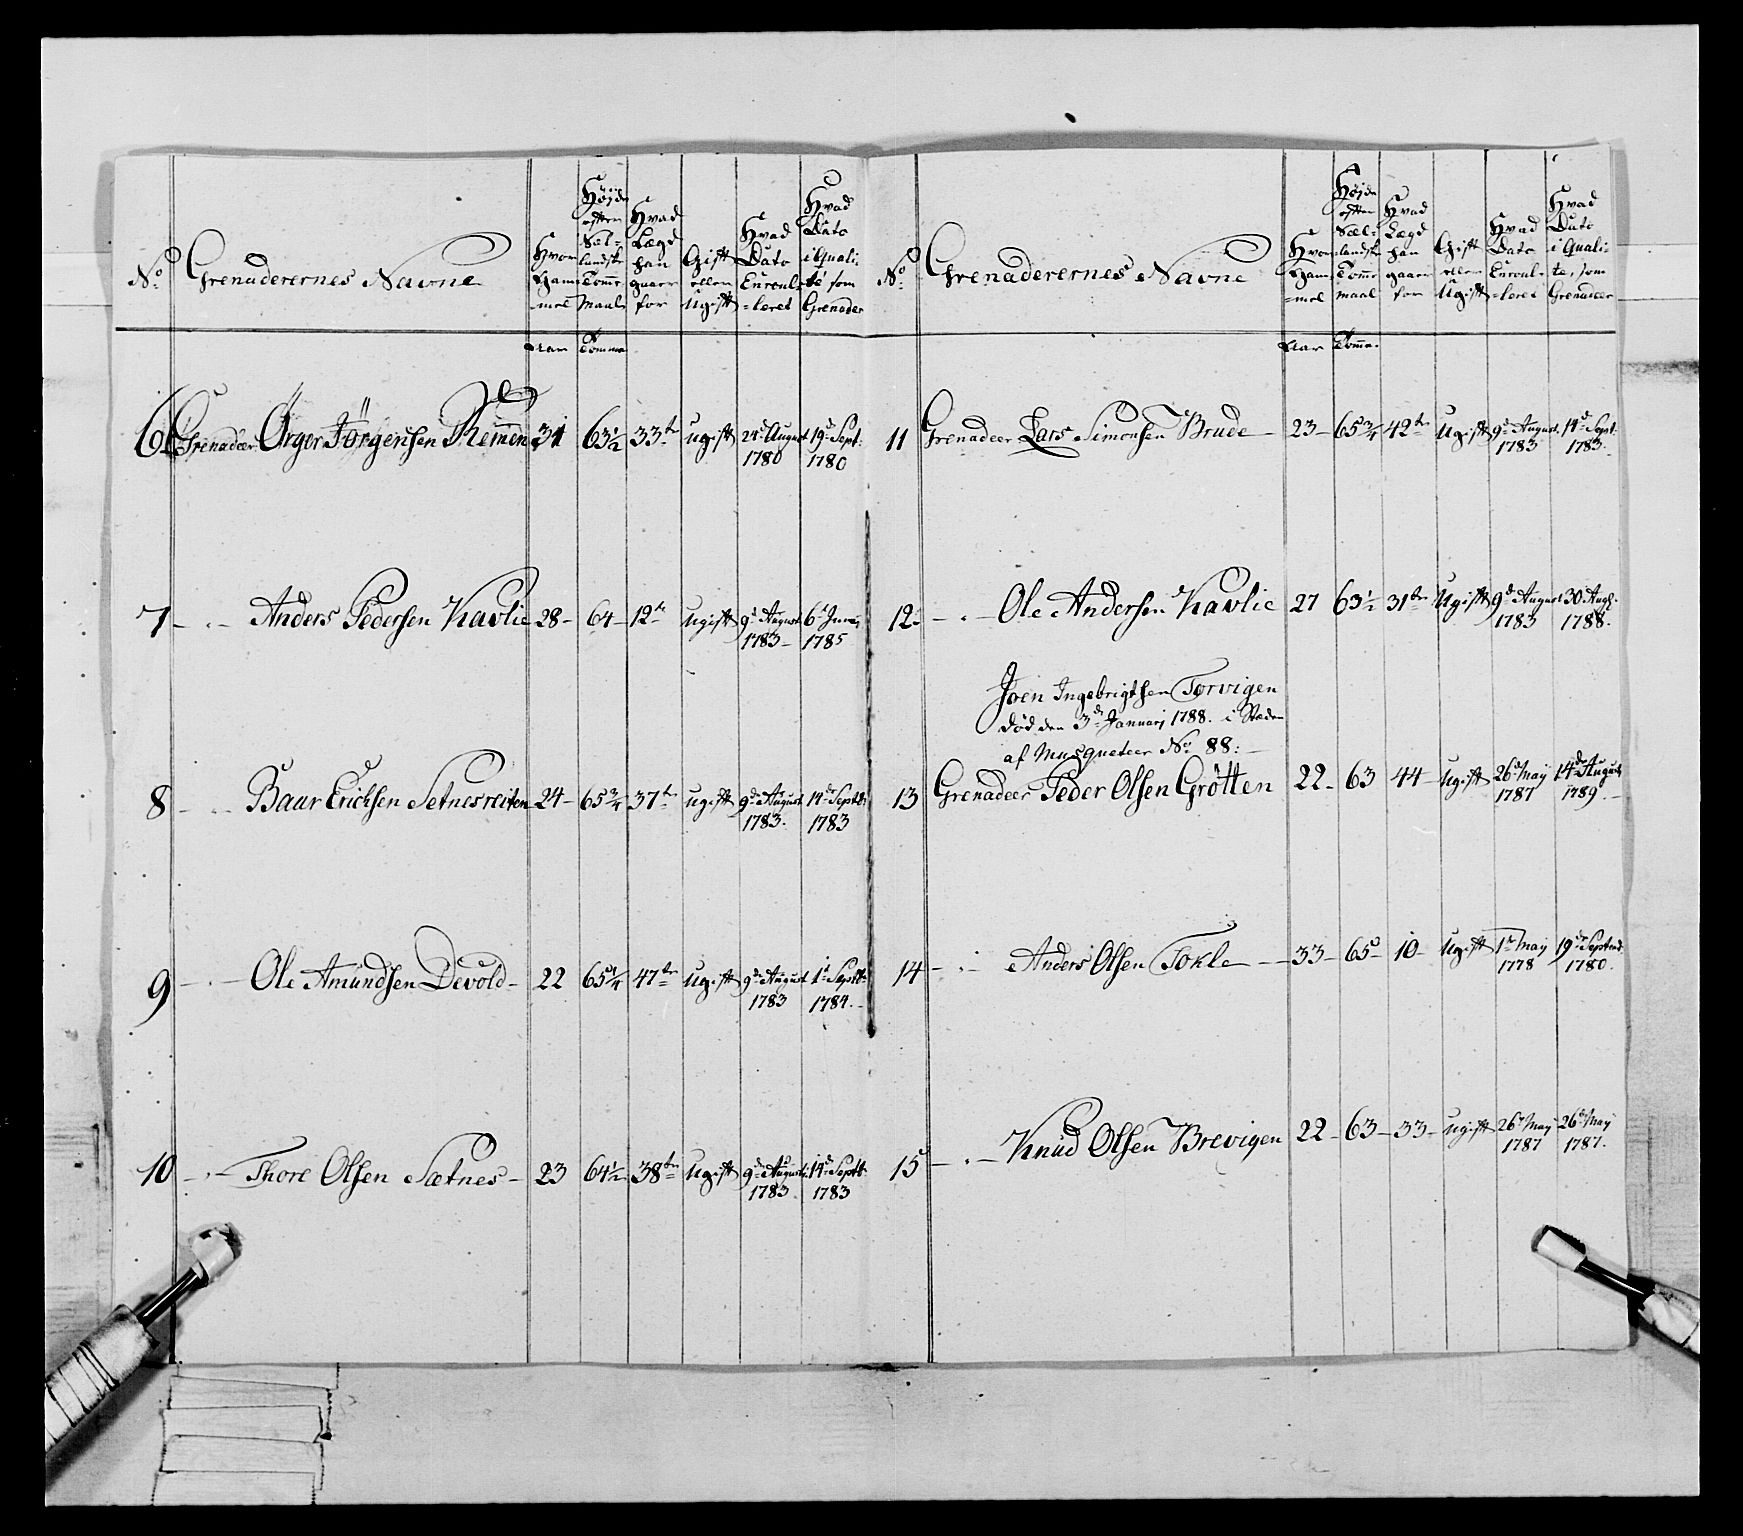 No. Grenaderernes Navne Hvor Gam-mel Højde efter Sæl-landsk Tomme Maal Hvad Lægd han gaaer for Gift eller Ugift Hvad Dato Enroul-leret Hvad Dato i Quali-té som Grenader
Aar Tomme
6 Grenadeer Örger Jörgensen Remen 31 63½ 33te ugift 24d August 1780 19d Sept: 1780
7 - Anders Pedersen Kavlie 28 - 64 - 12te ugift 9d August 1783 - 6d Junij 1785
8 - Baar Erichsen Setnesreiten 24 - 65¾ 37te ugift 9de August 1783. 14de Septb: 1783
9 - Ole Amundsen Devold - 22 65¼ 47de ugift 9de August 1783 1t Septb: 1784. -
10 - Thore Olsen Sætnes - 23 64½ 38te ugift 9de August: 1783. 14d Septb: 1783
No. Grenaderernes Navne Hvor Gam-mel Højde efter Sæl-landsk Tomme maal Hvad Lægd han gaaer for Gift eller Ugift Hvad Dato Enroul-leret Hvad Dato i Quali-te, som Grenadeer
Aar Tomme.
11 Grenadeer Lars Simonsen Brude 23 - 65¾ 42te ugift 9de August 1783 14d Sept: 1783.
12 - Ole Andersen Kavlie 27 63½ 31te ugift 9d August 1783 30 Augs: 1788.
Joen Ingebrigtsen Torvigen
død den 3de Januarj 1788. i Stæden
af Musqueteer No. 88: -
13 Grenadeer Peder Olsen Grötten 22 - 63 44 - ugift 26d May 1787 14d August 1789. -
14 - Anders Olsen Tokle - 33 - 65 - 10 - ugift 1te May 1778 19de Septemb: 1780.
15 - Knud Olsen Brevigen 22 - 63 - 33 - ugift 26d May 1787 26d May 1787.